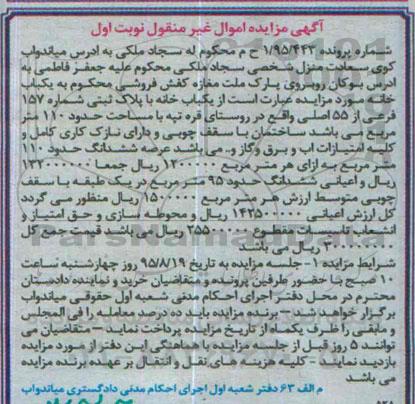 آگهی مزایده اموال غیر منقول نوبت اول
شماره پرونده ۱/۹۵/۴۴۳ ح م محکوم له سجاد ملکی به ادرس میاندواب
کوی سعادت منزل شخصی سجاد ملکی محکوم علیه جعفر فاطمی به
ادرس بوکان روبروی پارک ملت مغازه کفش فروشی محکوم به یکباب
خانه مورد مزایده عبارت است از یکباب خانه با پلاک ثبتی شماره ۱۵۷
فرعی از ۵۵ اصلی واقع در روستای قره تپه با مساحت حدود ۱۱۰ متر
مربع می باشد ساختمان با سقف چوبی و دارای نازک کاری کامل و
کلیه امتیازات اب و برق و گاز و.. می باشد عرصه ششدانگ حدود ۱۱۰
متر مربع به ازای هر متر مربع ۱۲۰۰۰۰۰ ریال جمعا ۱۳۲۰۰۰۰۰۰
ریال و اعیانی ششدانگ حدود ۹۵ متر مربع در یک طبقه با سقف
چوبی متوسط ارزش هر متر مربع ۱۵۰۰۰۰۰ ریال منظور می گردد
کل ارزش اعیانی ۱۴۲۵۰۰۰۰۰ ریال و محوطه سازی و حق امتیاز و
انشعاب تاسیسات مقطوع ۲۵۵۰۰۰۰۰ ریال می باشد قیمت جمع کل
ریال می باشد
شرایط مزایده ۱- جلسه مزایده به تاریخ ۹۵/۸/۱۹ روز چهارشنبه ساعت
۱۰ صبح با حضور طرفین پرونده و متقاضیان خرید و نماینده دادستان
محترم در محل دفتر اجرای احکام مدنی شعبه اول حقوقی میاندواب
برگزار خواهد شد- برنده مزایده باید ده درصد معامله را فی المجلس
و مابقی را ظرف یکماه از تاریخ مزایده پرداخت نماید – متقاضیان می
توانند ۵ روز قبل از جلسه مزایده با هماهنگی این دفتر از مورد مزایده
بازدید نمایند – کلیه هزینه های نقل و انتقال بر عهده برنده مزایده
می باشد
م الف ۶۳ دفتر شعبه اول اجرای احکام مدنی دادگستری میاندواب